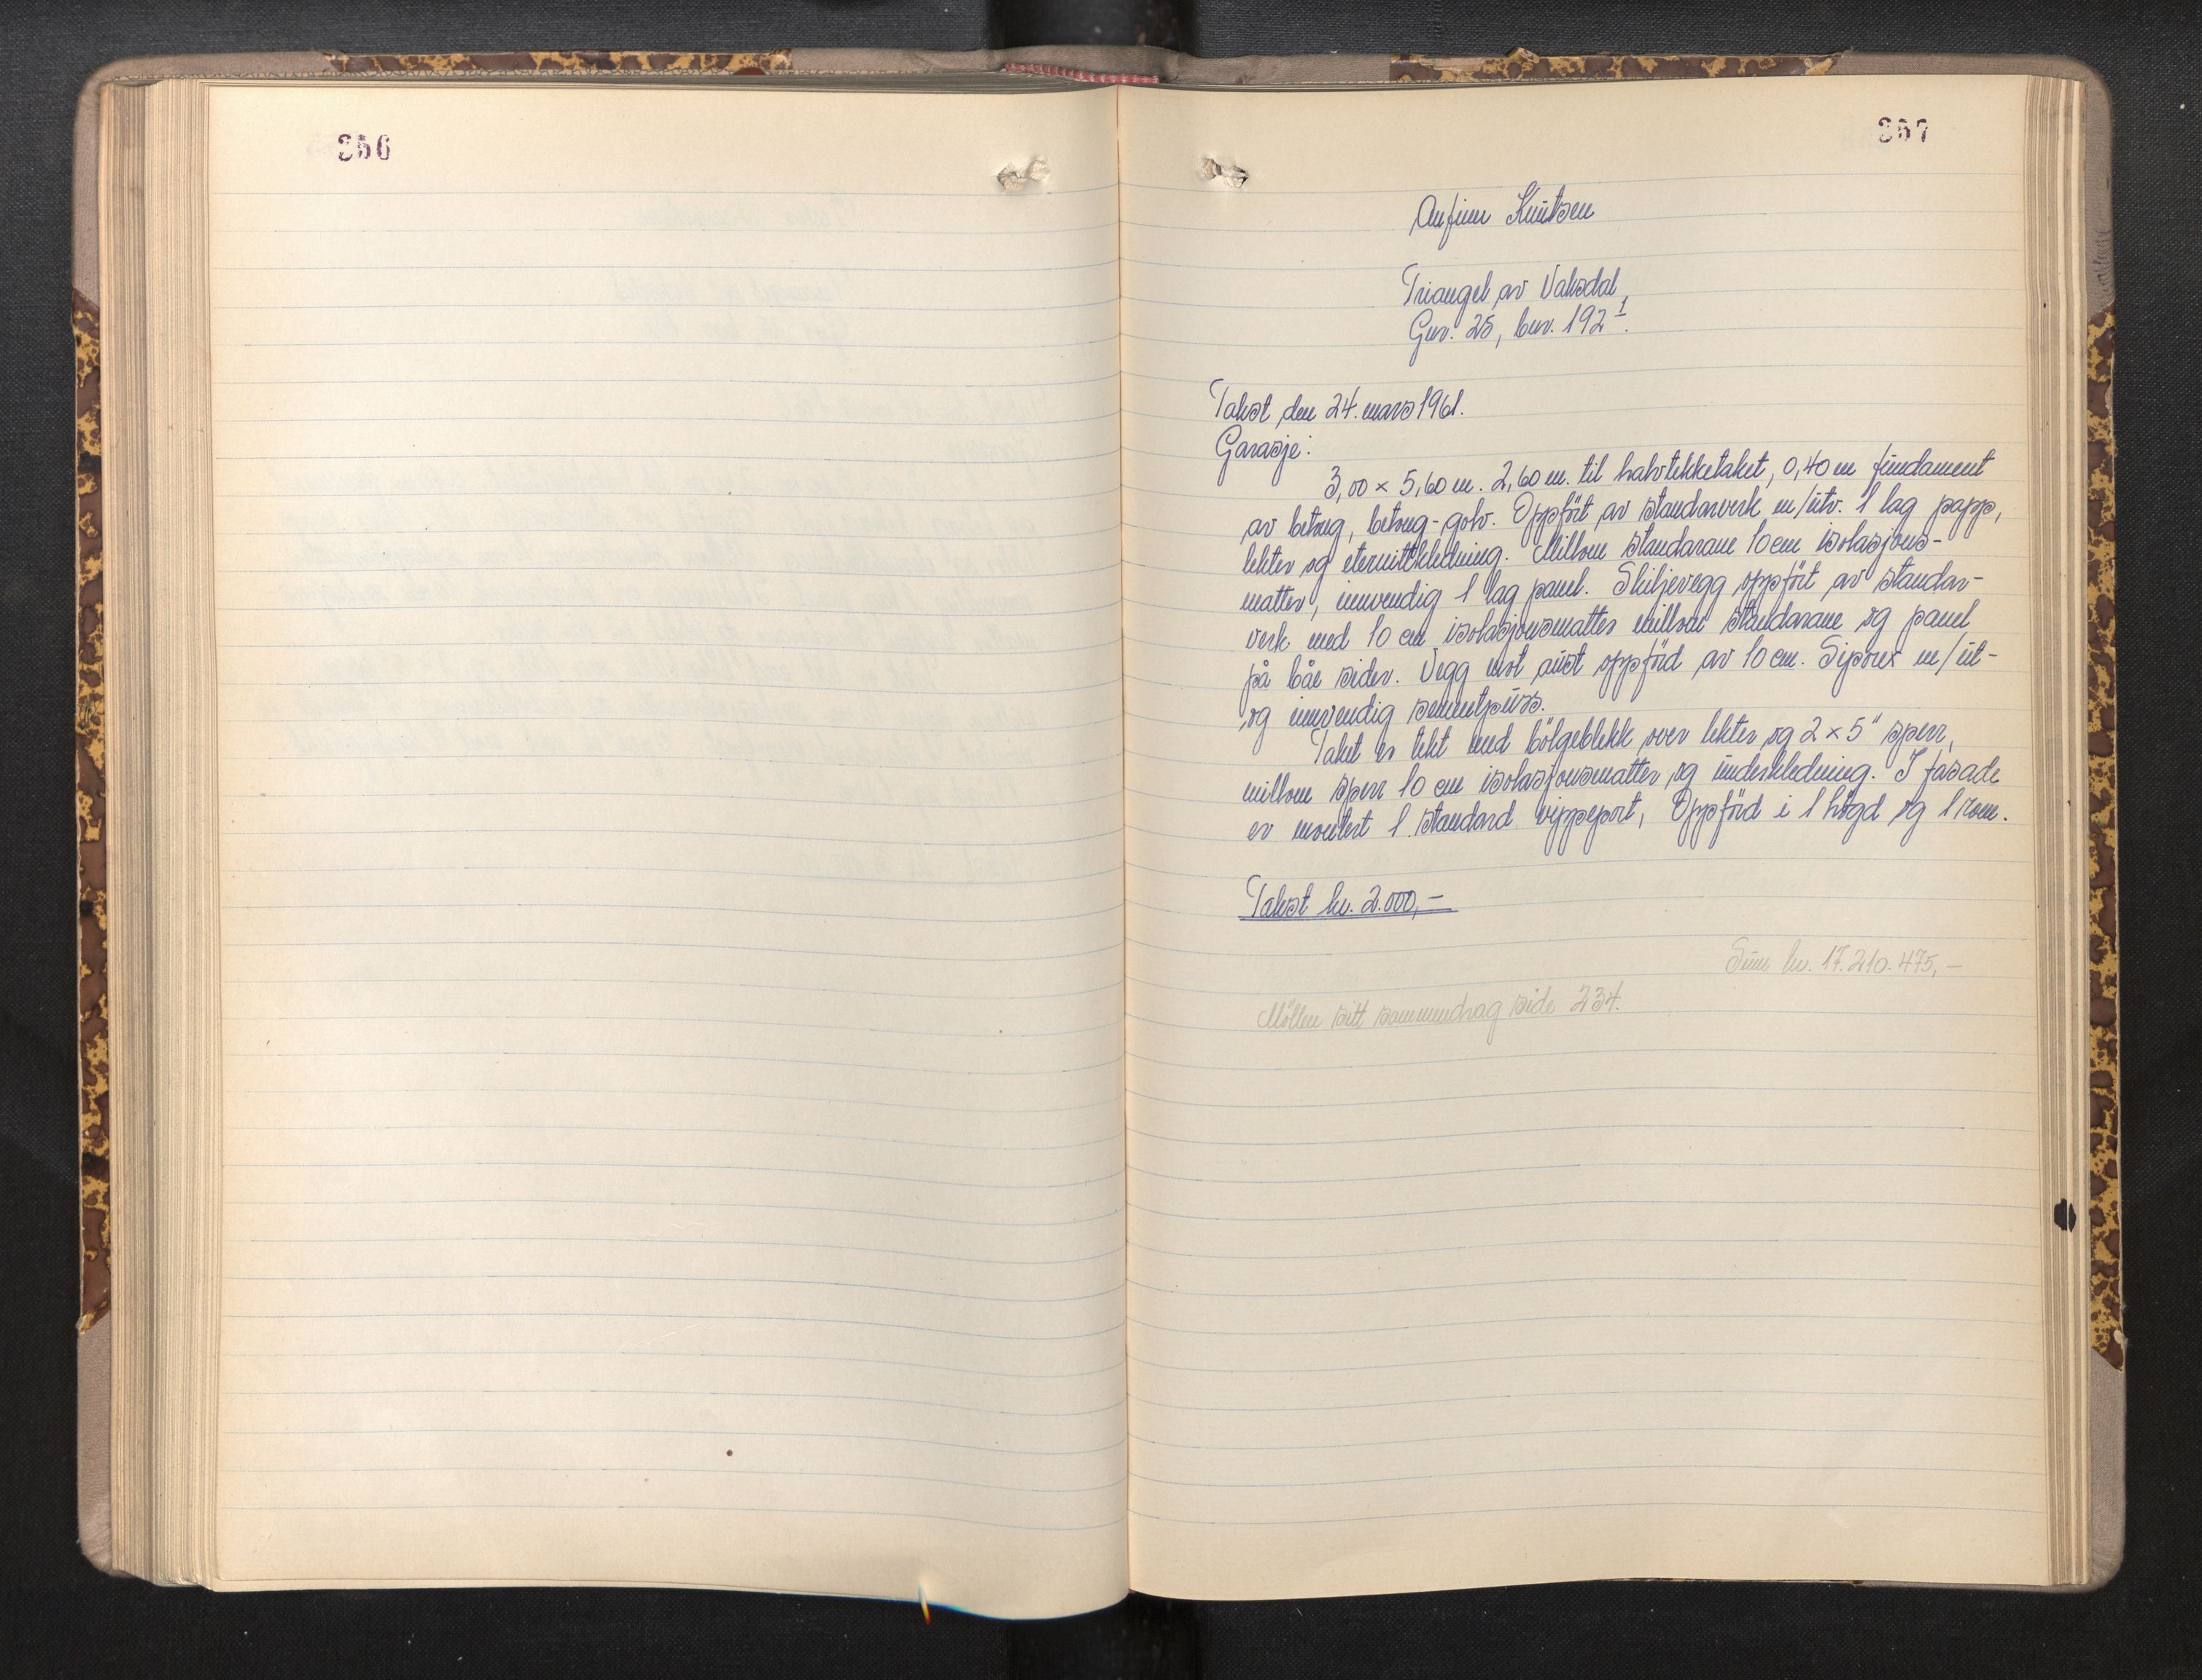 356
357
Anfinn Knutsen
Triangel av Vaksdal,
Gnr. 25, bnr. 192¹.
Takst den 24. mars 1961.
Garasje:
3,00 × 5,60 m. 2,60 m. til halvtekketaket, 0,40 m fundament
av betong, betong-golv. Oppført av standarverk m/utv. 1 lag papp,
lekter og eternittkledning. Millom standarane 10 cm isolasjons-
matter, innvendig 1 lag panel. Skiljevegg oppført av standar-
verk med 10 cm isolasjonsmatter millom standarane og panel
på båe sider. Vegg mot aust oppførd av 10 cm. Siporex m/ut-
og innvendig sementpuss.
Taket er tekt med bølgeblekk over lekter og 2 × 5" sperr,
millom sperr 10 cm isolasjonsmatter og underkledning. I fasade
er montert 1 standard vippeport, Oppførd i 1 høgd og 1 rom.
Takst kr. 2.000,-
Sum kr. 17.210.475,-
Møllen sitt sammendrag side 234.